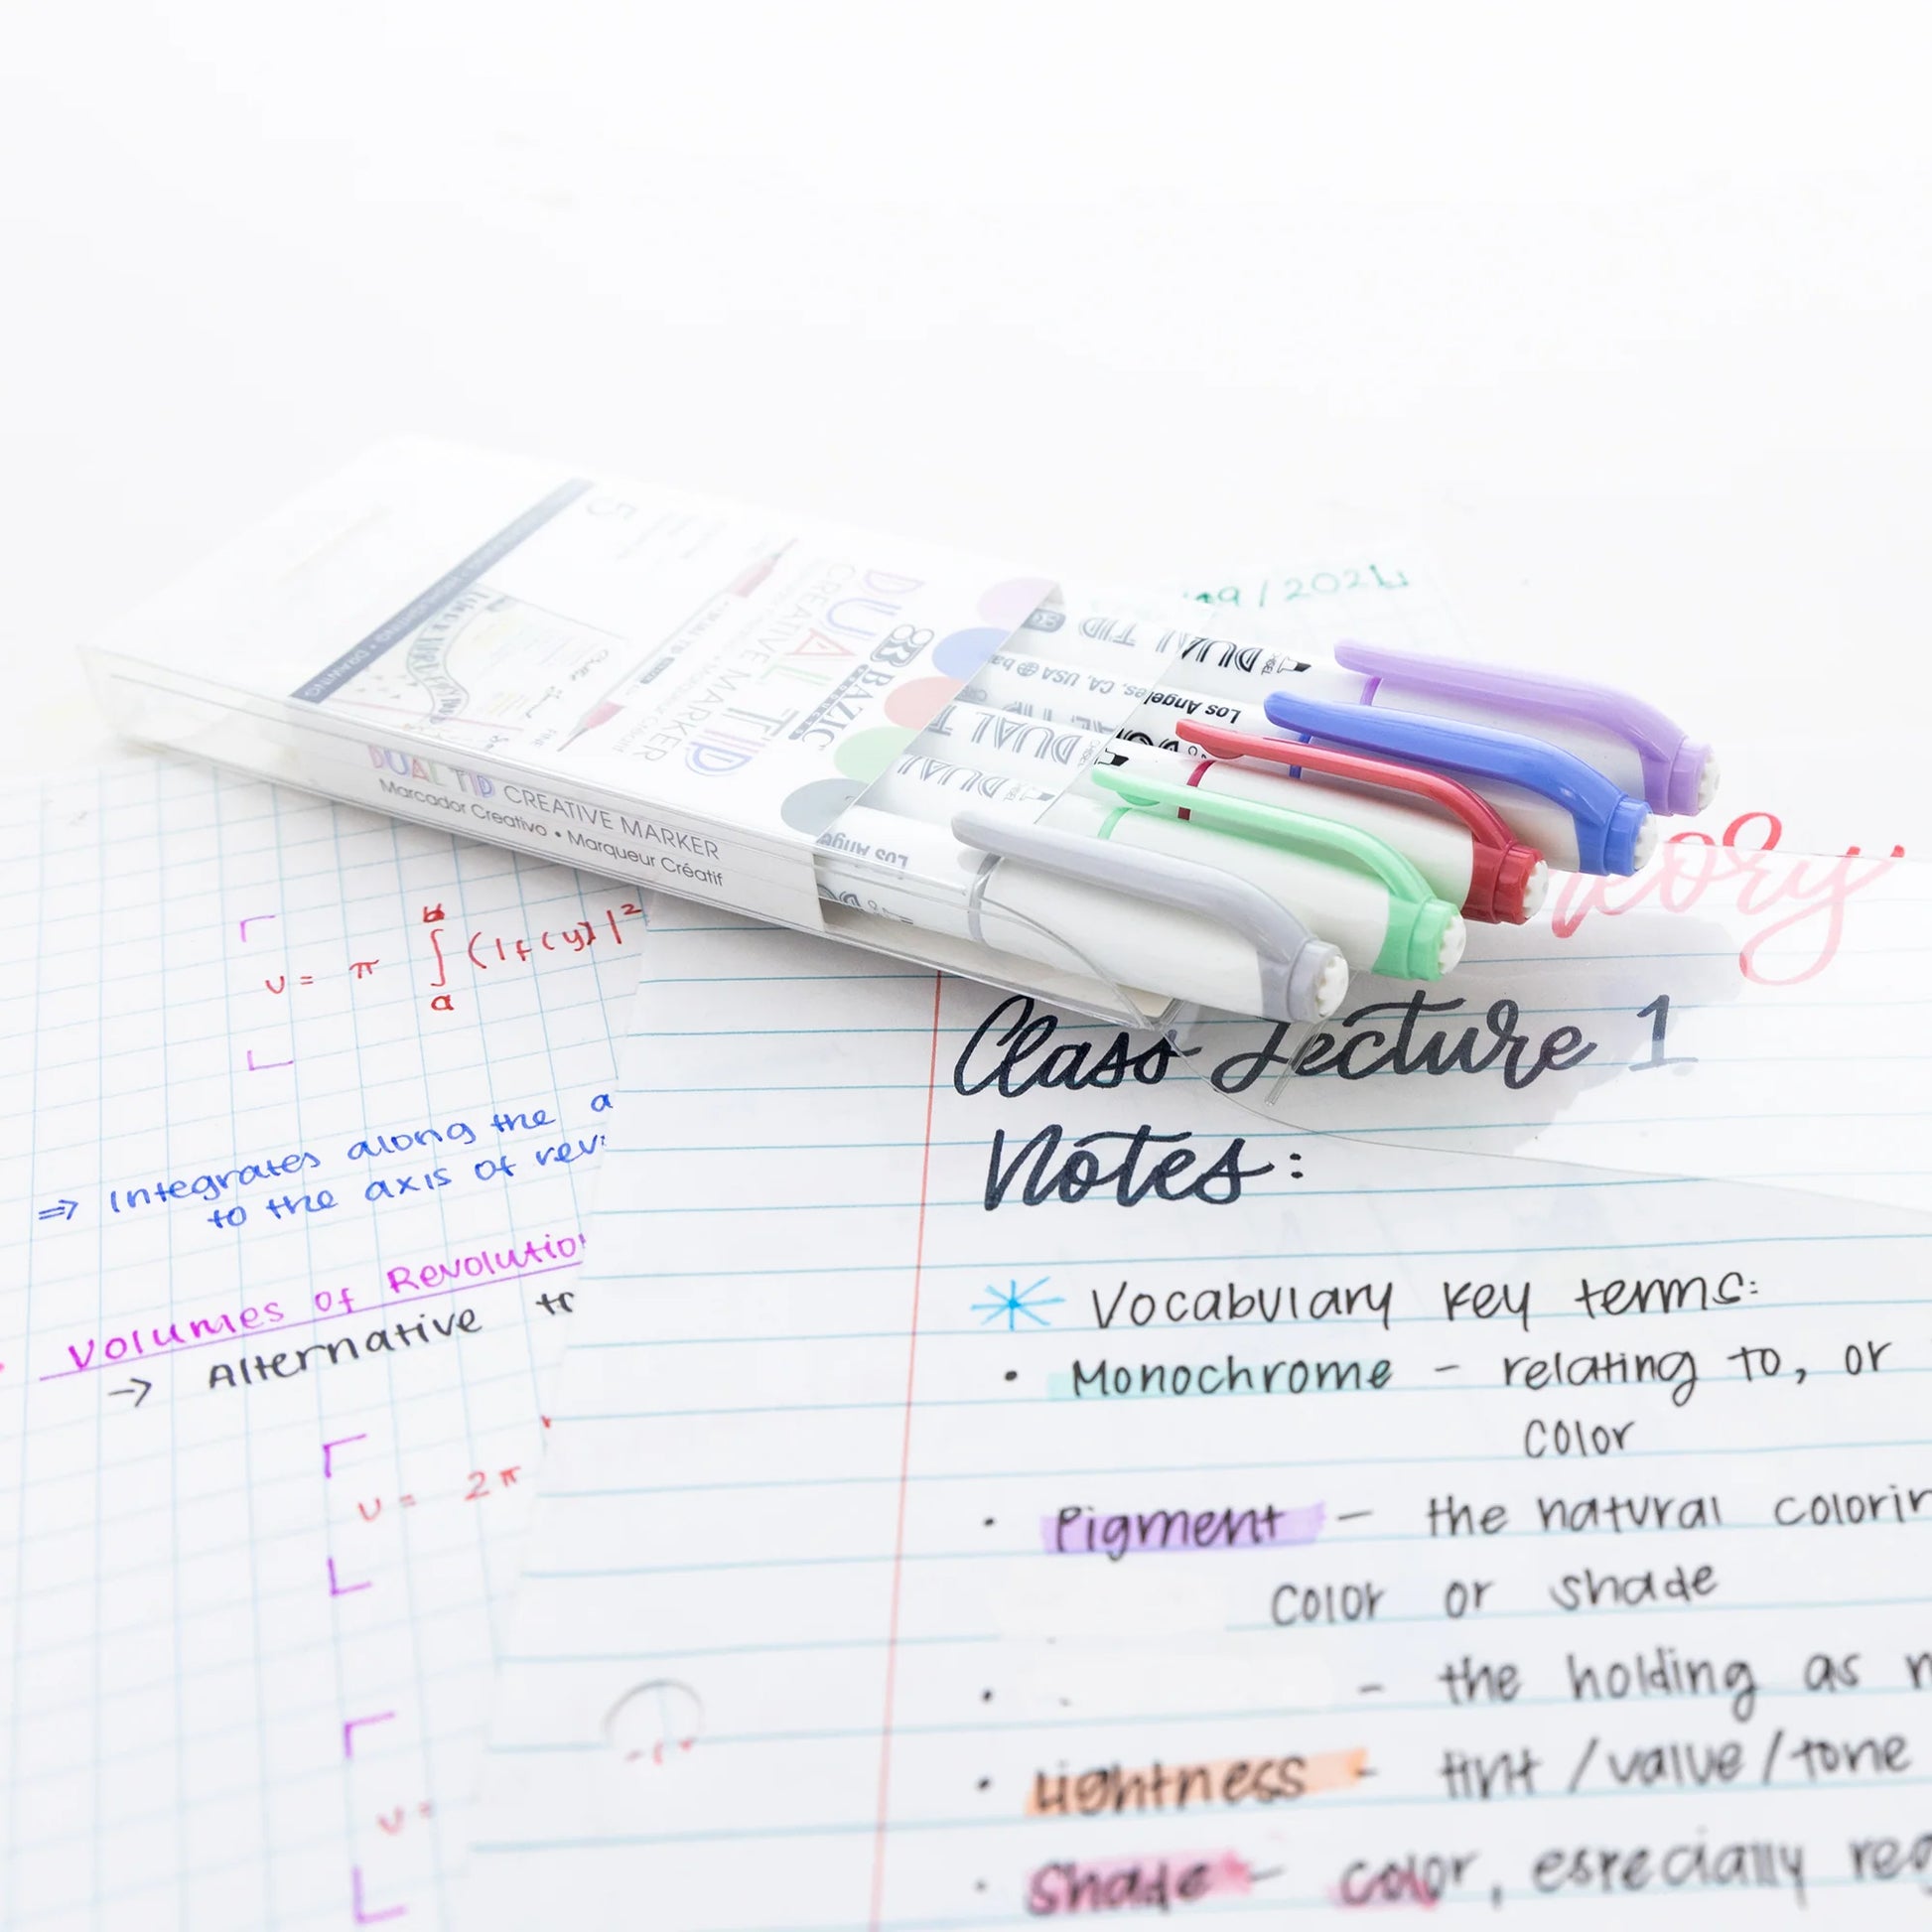 DUAL TIP
CREATIVE MARKER
BAZIC
DUAL TIP CREATIVE MARKER
Marcador Creativo • Marqueur Créatif
DUAL TIP
Los Angeles, CA, USA
DUAL T
DUAL
Los Ange
9/2021
eory
Class Lecture 1
Notes:
Vocabulary key terms:
• Monochrome - relating to, or
color
• Pigment - the natural colorin
color or shade
• - the holding as
• Lightness - tint/value/tone
• Shade - color, especially reg
v = π ∫ a b (|f(y)|²
⇒ Integrates along the a
to the axis of rev
Volumes of Revolution
→ Alternative tr
v = 2π
v =